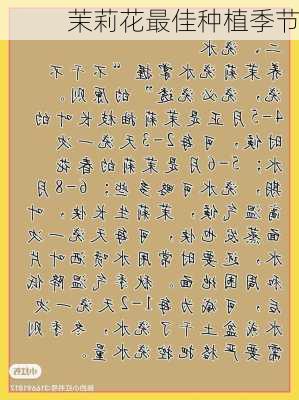 茉莉花最佳种植季节
二、浇水
养茉莉浇水掌握“不干不
浇，浇必浇透”的原则。
4-5月正是茉莉抽枝长叶的
时候，可每2-3天浇一次
水；5-6月是茉莉的春花
期，浇水可略多些；6-8月
高温气候，茉莉生长快，叶
面蒸发也快，可每天浇一次
水，还要时常用水喷洒叶片
和周围地面。秋季气温降低
后，可减为每1-2天浇一次
水或盆土干了浇水，冬季则
需要严格把控浇水量。
小红书